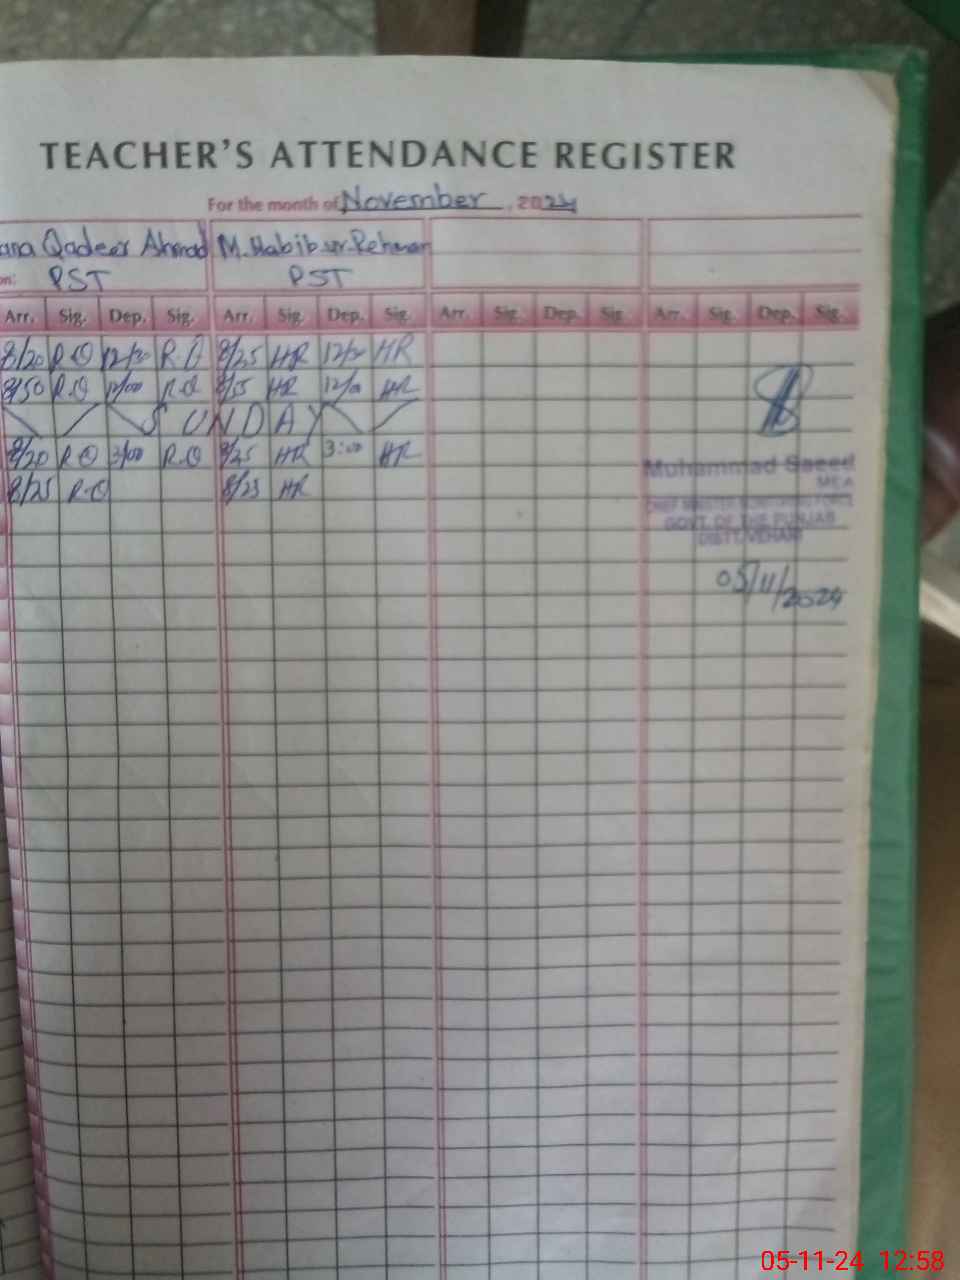 TEACHER'S ATTENDANCE REGISTER
For the month of November, 2024
ana Qadeer Ahmad M. Habib ur. Rehman
on: PST PST
Arr. Sig. Dep. Sig. Arr. Sig. Dep. Sig. Arr. Sig. Dep. Sig. Arr. Sig. Dep. Sig.
8/20 R.Q 12/30 R.Q 8/25 HR 12/30 HR
8/50 R.Q 12/00 R.Q 8/55 HR 12/0 HR
SUNDAY
8/20 R.Q 3/00 R.Q 8/25 HR 3:00 HR
8/25 R.Q 8/23 HR
Muhammad Saeed
MEA
CHIEF MINISTER MONITORING FORCE
GOVT. OF THE PUNJAB
DISTT. VEHARI
05/11/2024
05-11-24 12:58